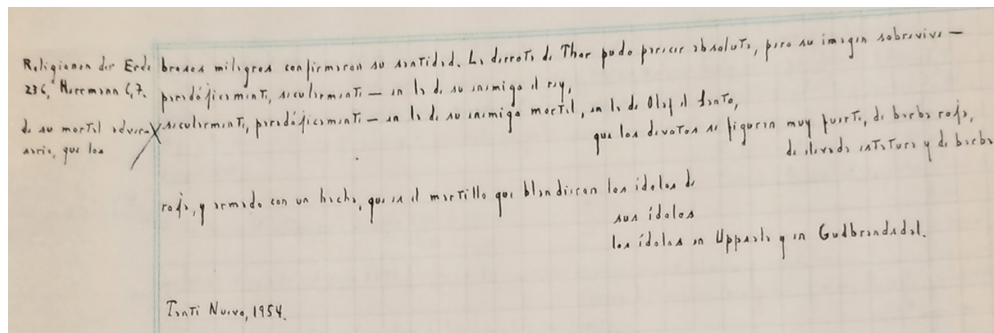 Religionen der Erde
236, Herrmann 6, 7.
de su mortal adver-
sario, que los
brosos milagros confirmaron su santidad. La derrota de Thor pudo parecer absoluta, pero su imagen sobrevive —
paradójicamente, secularmente — en la de su enemigo el rey,
secularmente, paradójicamente — en la de su enemigo mortal, en la de Olaf el Santo,
que los devotos se figuran muy fuerte, de barba roja,
de elevada estatura y de barba
roja, y armado con un hacha, que es el martillo que blandieron los ídolos de
sus ídolos
los ídolos en Uppsala y en Gudbrandsdal.
Tanti Nuevo, 1954.